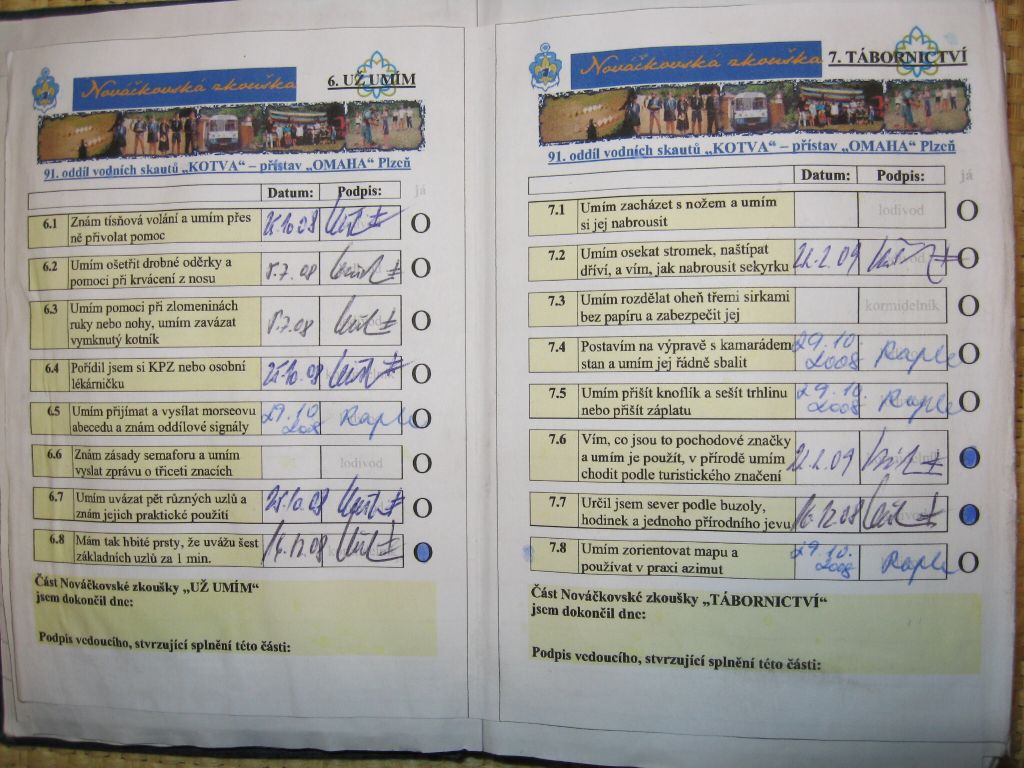 Nováčkovská zkouška
6. UŽ UMÍM
91. oddíl vodních skautů „KOTVA“ – přístav „OMAHA“ Plzeň
Datum: Podpis: já
6.1 Znám tísňová volání a umím přes
ně přivolat pomoc
25.10.08
6.2 Umím ošetřit drobné oděrky a
pomoci při krvácení z nosu
5.7.08
6.3 Umím pomoci při zlomeninách
ruky nebo nohy, umím zavázat
vymknutý kotník
5.7.08
6.4 Pořídil jsem si KPZ nebo osobní
lékárničku
25.10.08
6.5 Umím přijímat a vysílat morseovu
abecedu a znám oddílové signály
29.10.
2008
Raple
6.6 Znám zásady semaforu a umím
vyslat zprávu o třiceti znacích
lodivod
6.7 Umím uvázat pět různých uzlů a
znám jejich praktické použití
25.10.08
6.8 Mám tak hbité prsty, že uvážu šest
základních uzlů za 1 min.
16.12.08
Část Nováčkovské zkoušky „UŽ UMÍM“
jsem dokončil dne:
Podpis vedoucího, stvrzující splnění této části:
Nováčkovská zkouška
7. TÁBORNICTVÍ
91. oddíl vodních skautů „KOTVA“ – přístav „OMAHA“ Plzeň
Datum: Podpis: já
7.1 Umím zacházet s nožem a umím
si jej nabrousit
lodivod
7.2 Umím osekat stromek, naštípat
dříví, a vím, jak nabrousit sekyrku
22.2.09
7.3 Umím rozdělat oheň třemi sirkami
bez papíru a zabezpečit jej
kormidelník
7.4 Postavím na výpravě s kamarádem
stan a umím jej řádně sbalit
29.10.
2008
Raple
7.5 Umím přišít knoflík a sešít trhlinu
nebo přišít záplatu
29.10.
2008
Raple
7.6 Vím, co jsou to pochodové značky
a umím je použít, v přírodě umím
chodit podle turistického značení
22.2.09
7.7 Určil jsem sever podle buzoly,
hodinek a jednoho přírodního jevu
16.12.08
7.8 Umím zorientovat mapu a
používat v praxi azimut
29.10.
2008
Raple
Část Nováčkovské zkoušky „TÁBORNICTVÍ“
jsem dokončil dne:
Podpis vedoucího, stvrzující splnění této části: